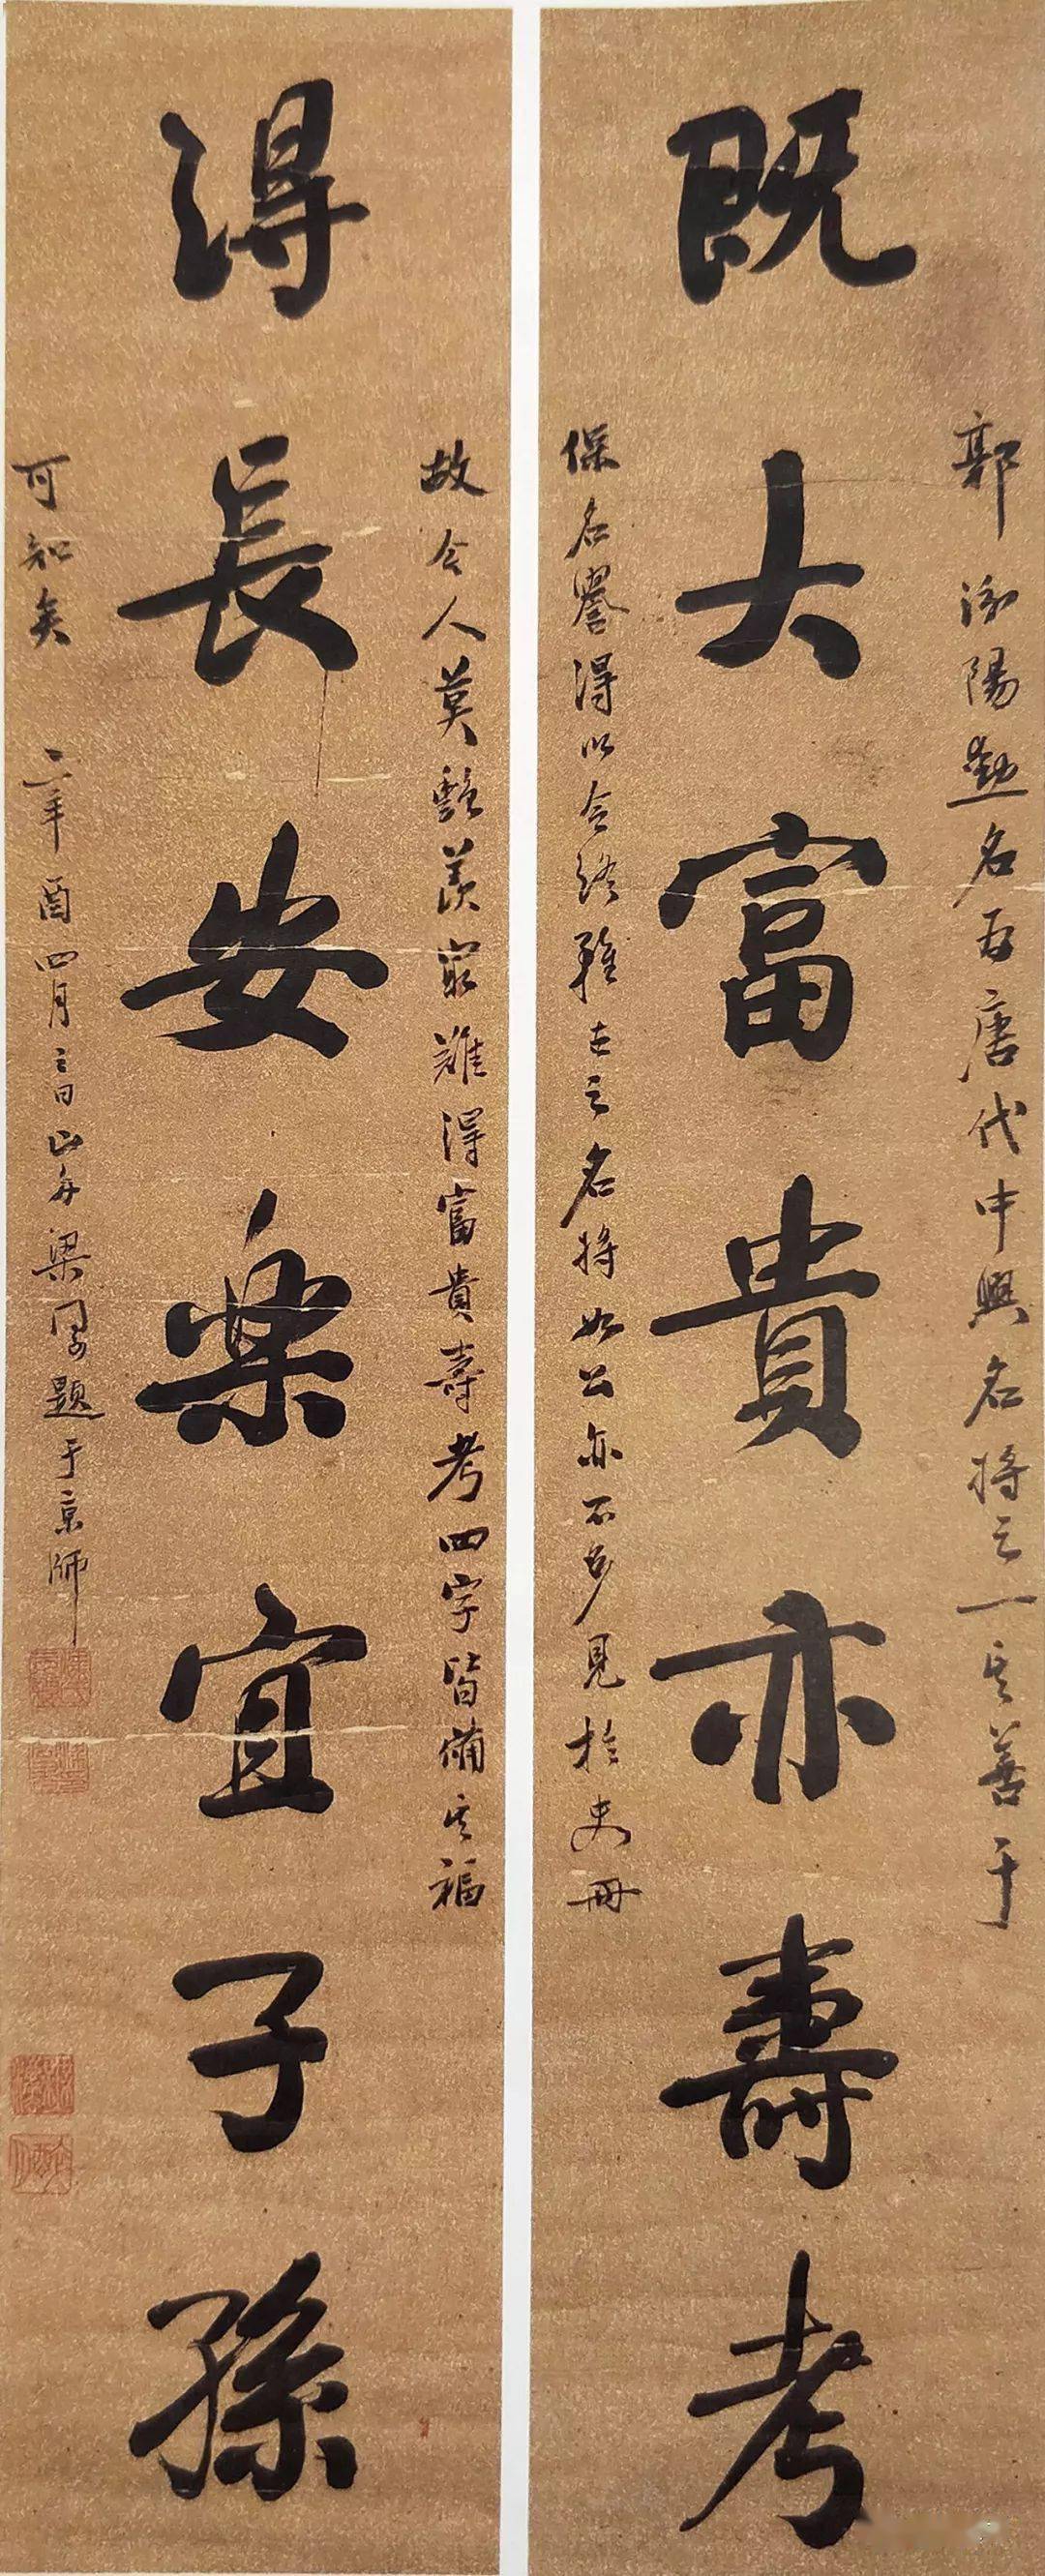 既大富貴亦壽考
郭汾陽勳名為唐代中興名將之一其善于
保名譽得以令終雖古之名將如公亦不多見於史冊
得長安樂宜子孫
故令人莫能羨最難得富貴壽考四字皆備其福
可知矣 辛酉四月 山舟梁同書題于京師